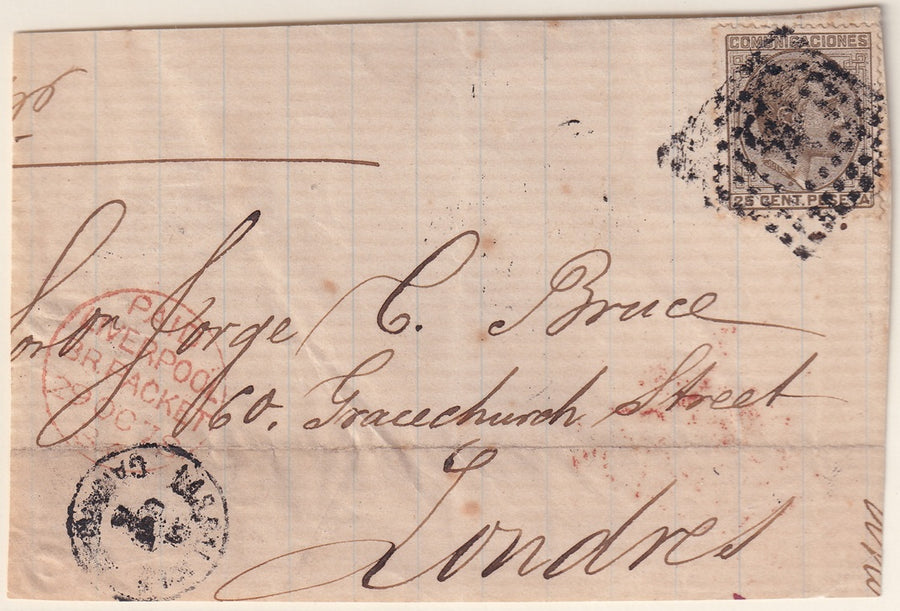 COMUNICACIONES
25 CENT. PESETA
Sor Dn Jorge C. Bruce
60. Gracechurch Street
Londres
PAID
LIVERPOOL
BR. PACKET